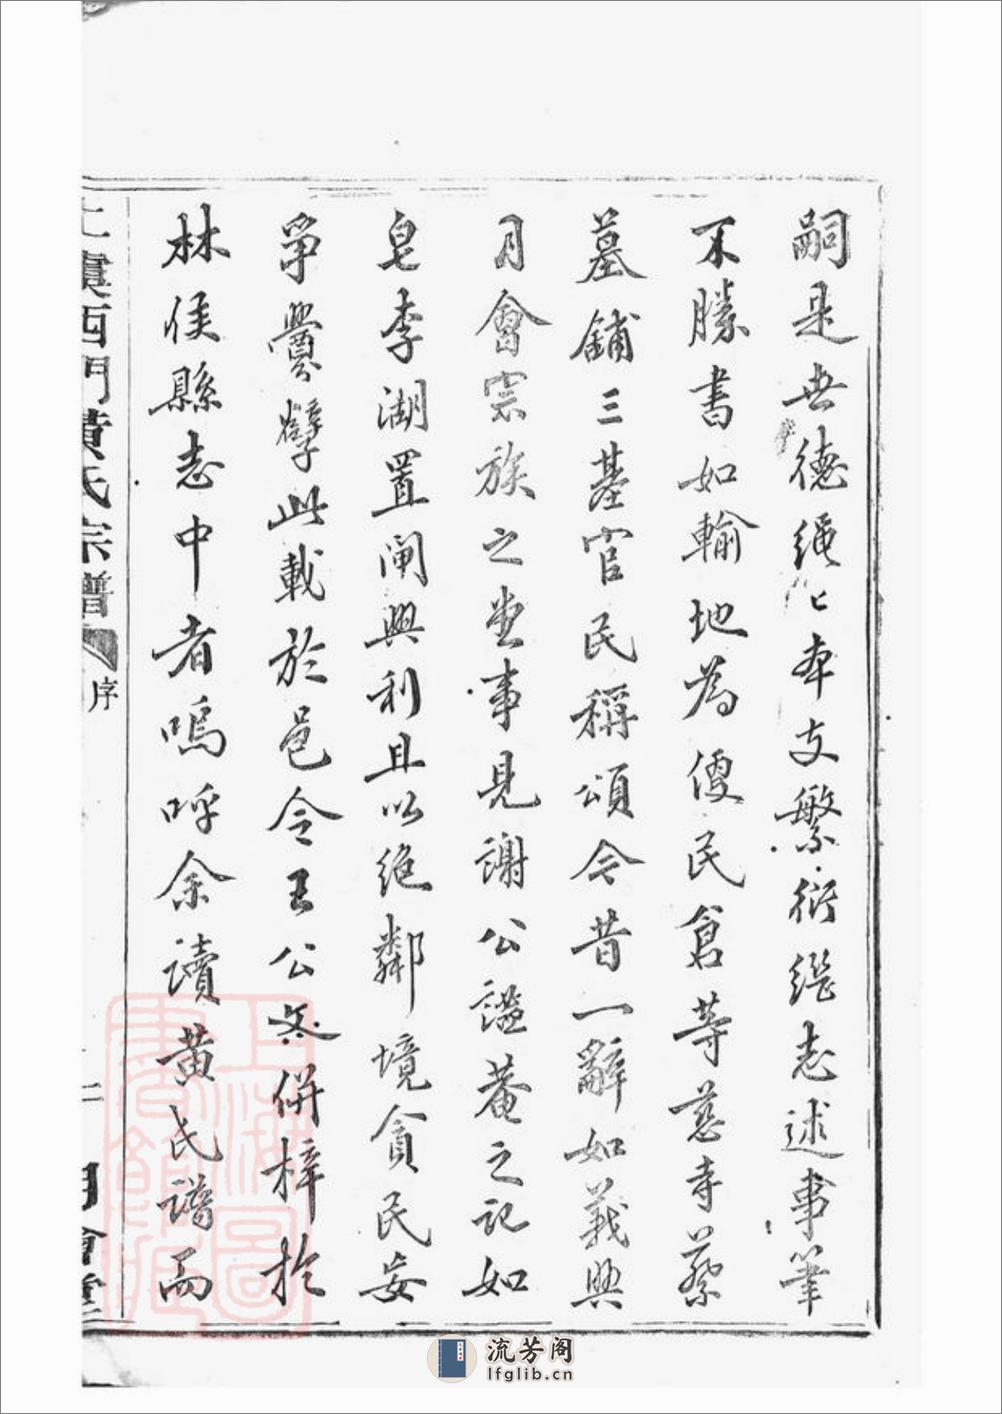 嗣是世德繩〻本支繁衍繼志述事筆
不勝書如輸地為便民倉等慈寺蔡
墓鋪三基官民稱頌今昔一辭如義興
月會宗族之堂事見謝公謚菴之記如
皂李湖置閘興利且以絕鄰境貪民妄
爭釁孽此載於邑令王公 併梓於
林侯縣志中者嗚呼余讀黃氏譜而
上虞西門黃氏宗譜
序
二
月會堂
上海圖書館藏
流芳阁
lfglib.cn